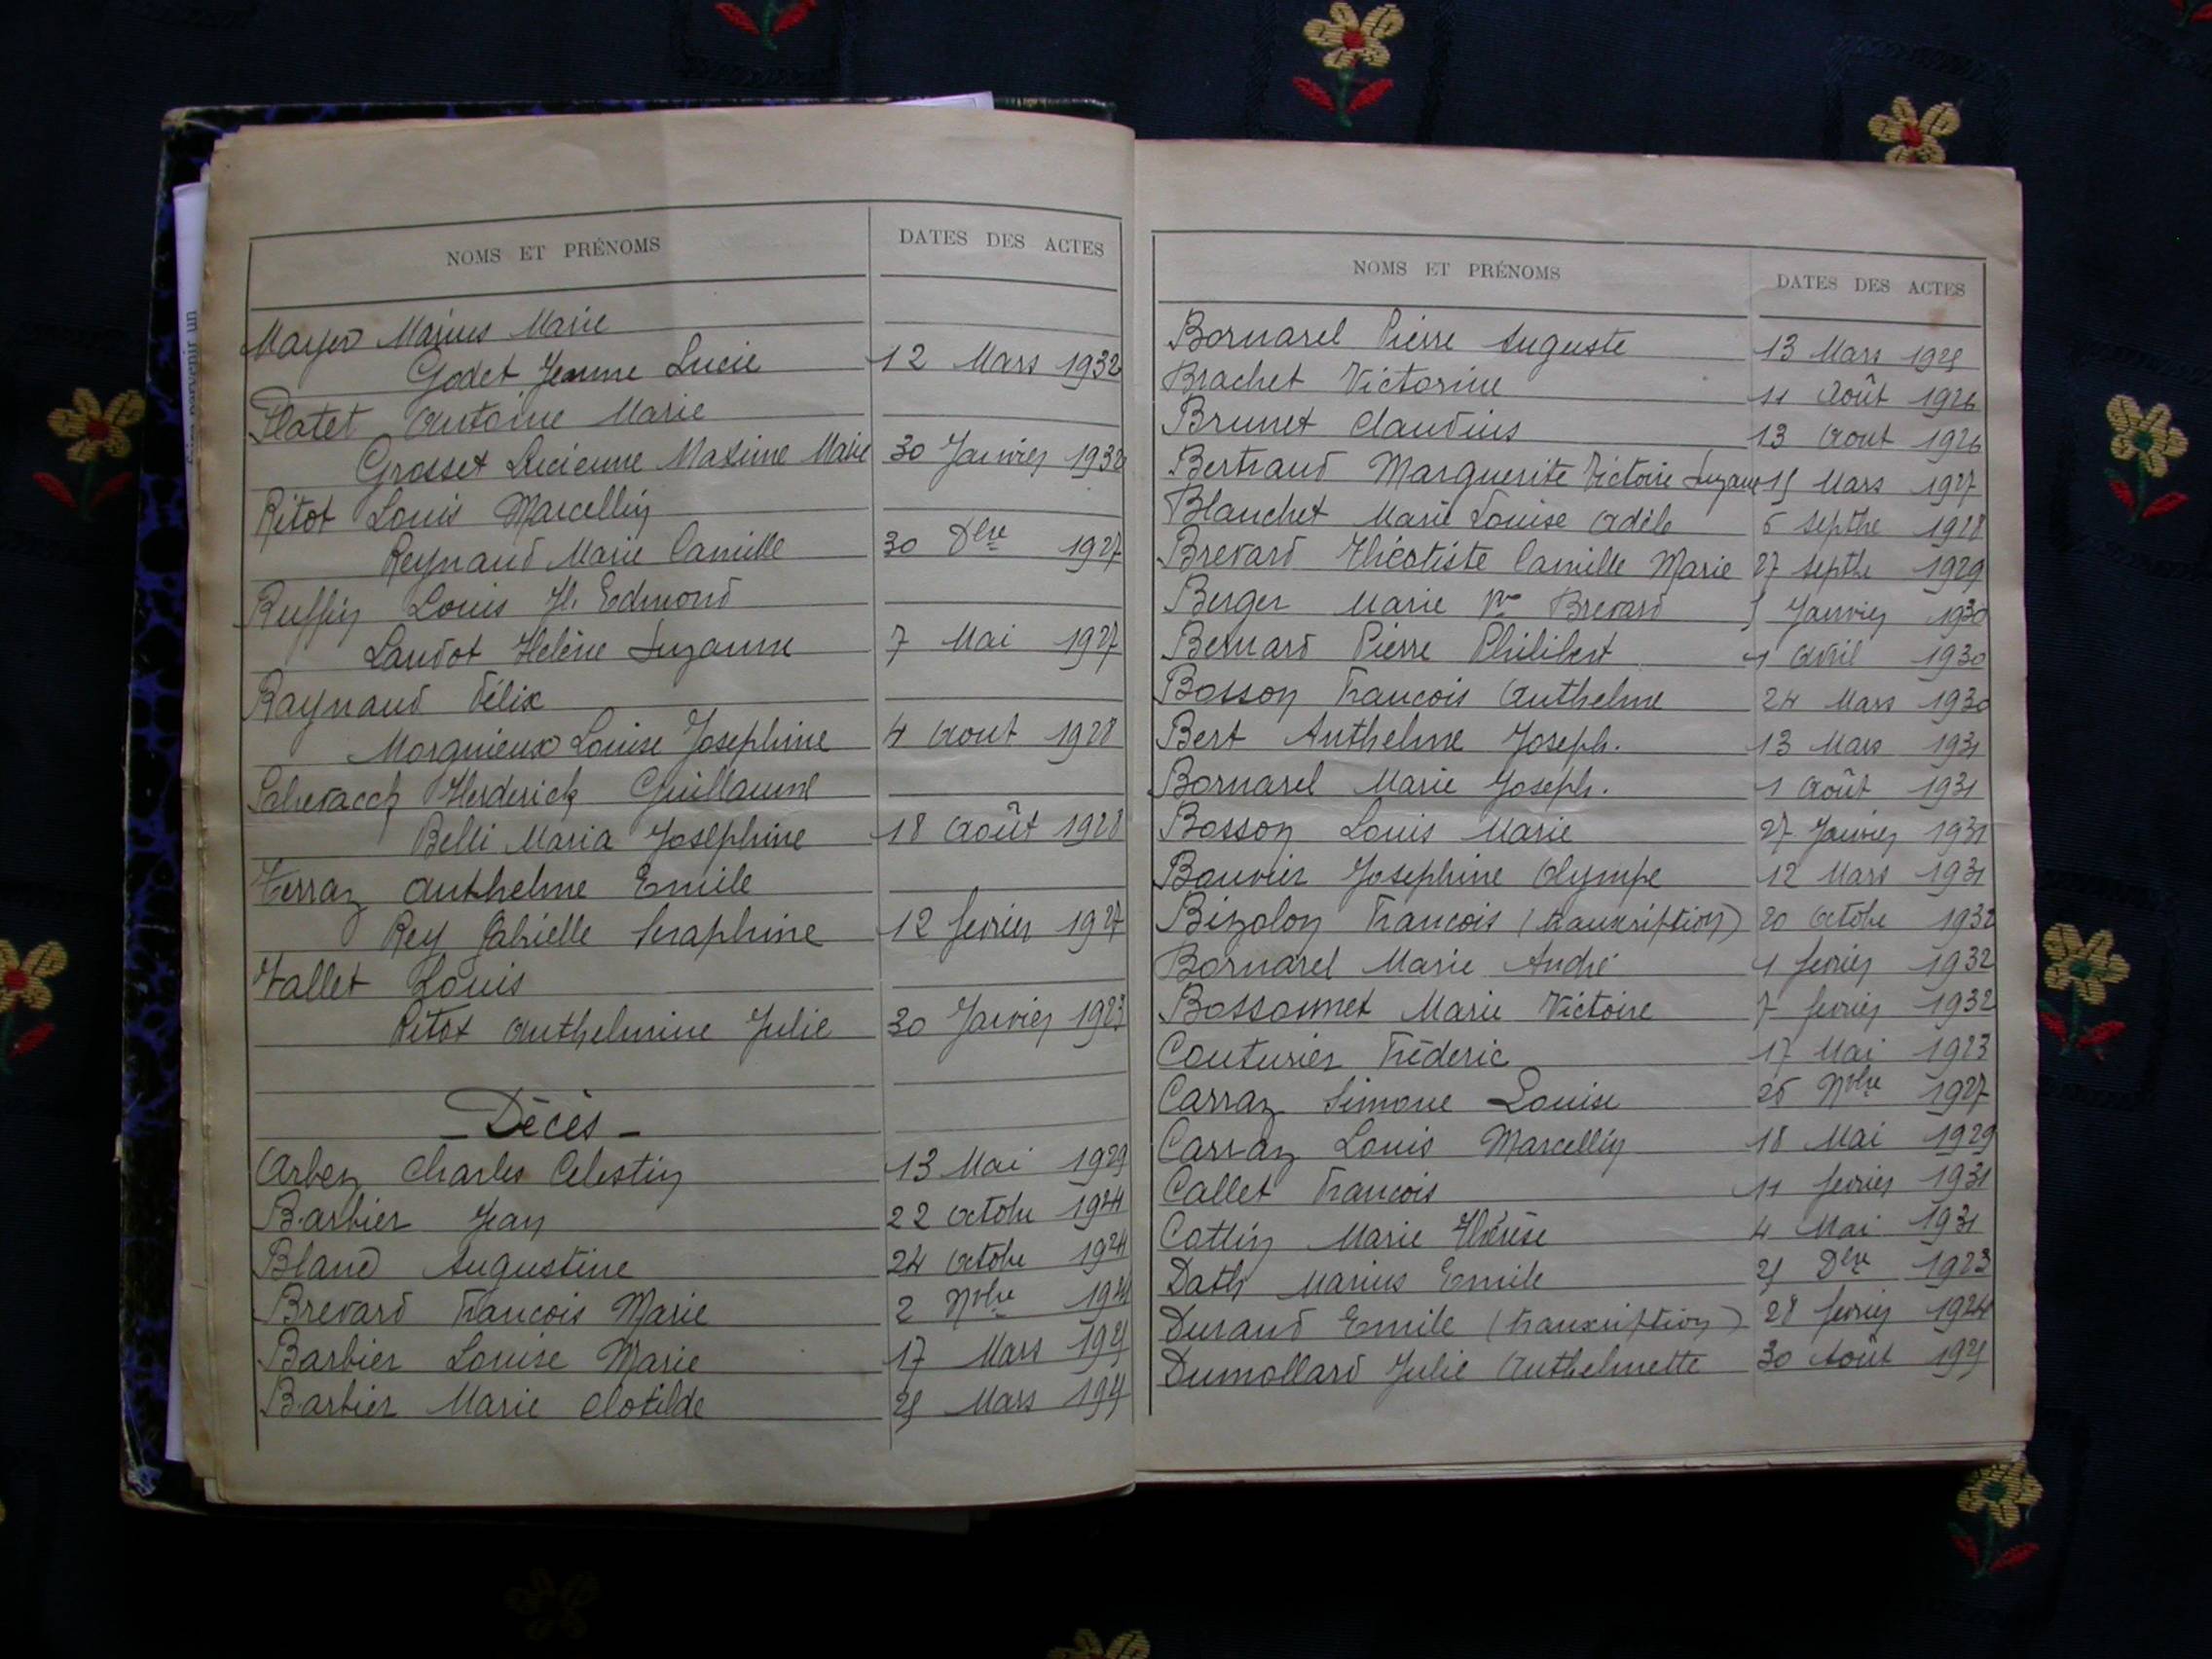 NOMS ET PRÉNOMS DATES DES ACTES
Mayer Marius Marie
Godet Jeanne Lucie 12 Mars 1932
Platet Antoine Marie
Grosset Lucienne Maxime Marie 30 Janvier 1932
Ritot Louis Marcellin
Reynaud Marie Camille 30 Dbre 1927
Ruffin Louis H. Edmond
Landot Helène Suzanne 7 Mai 1927
Raynaud Félix
Morgnieux Louise Josephine 4 Aout 1928
Herderick Guillaume
Belli Maria Joséphine 18 Août 1928
Terraz Anthelme Emile
Rey Gabrielle Seraphine 12 fevrier 1927
Vallet Louis
Ritot Anthelmine Julie 30 Janvier 1923
- Décès -
Arben Charles Celestin 13 Mai 1929
Barbier Jean 22 Octobre 1924
Bland Augustine 24 Octobre 1924
Brevard Francois Marie 2 Nbre 1924
Barbier Louise Marie 17 Mars 1925
Barbier Marie Clotilde 25 Mars 1925
NOMS ET PRÉNOMS DATES DES ACTES
Bornarel Pierre Auguste 13 Mars 1925
Brachet Victorine 11 Août 1926
Brunet Claudius 13 Aout 1926
Bertraud Marguerite Victoire Suzanne 15 Mars 1927
Blanchet Marie Louise Adèle 6 Septbre 1928
Brevard Théotiste Camille Marie 27 Septbre 1929
Berger Marie Vve Brevard 5 Janvier 1930
Bernard Pierre Philibert 1 Avril 1930
Bosson Francois Anthelme 24 Mars 1930
Bert Anthelme Joseph. 13 Mars 1931
Bornarel Marie Joseph. 1 Août 1931
Bosson Louis Marie 27 Janvier 1931
Bouvier Josephine Olympe 12 Mars 1931
Bizolon Francois (transcription) 20 Octobre 1932
Bornarel Marie André 1 fevrier 1932
Bossonnet Marie Victoire 7 fevrier 1932
Couturier Fréderic 17 Mai 1923
Carraz Simone Louise 26 Nbre 1927
Carraz Louis Marcellin 18 Mai 1929
Callet Francois 11 fevrier 1931
Cottin Marie Thérèse 4 Mai 1931
Dath Marius Emile 25 Dbre 1923
Durand Emile (transcription) 28 fevrier 1924
Dumollard Julie Anthelmette 30 Août 1925